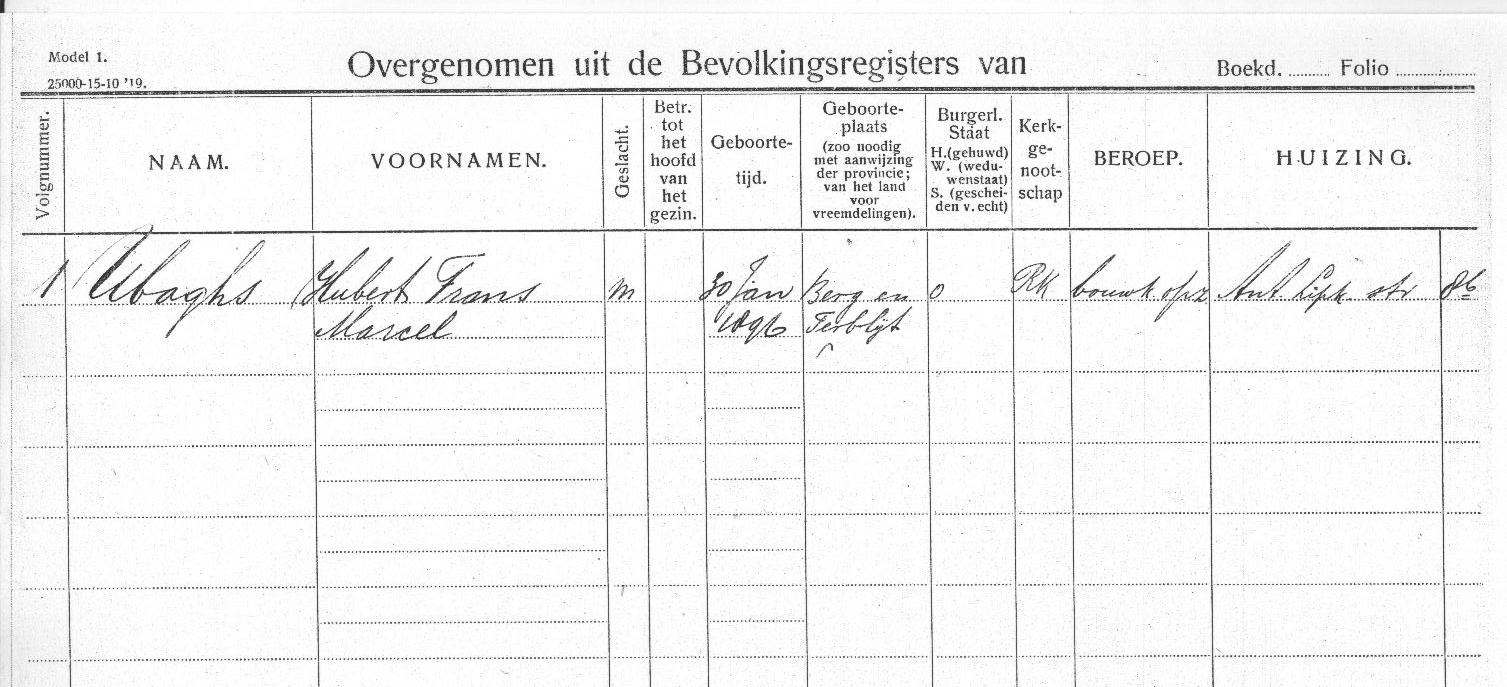 Model 1.
25000-15-10 '19.
Overgenomen uit de Bevolkingsregisters van
Boekd. ......... Folio .................
Volgnummer.
NAAM.
VOORNAMEN.
Geslacht.
Betr.
tot
het
hoofd
van
het
gezin.
Geboorte-
tijd.
Geboorte-
plaats
(zoo noodig
met aanwijzing
der provincie;
van het land
voor
vreemdelingen).
Burgerl.
Staat
H.(gehuwd)
W. (wedu-
wenstaat)
S. (geschei-
den v. echt)
Kerk-
ge-
noot-
schap
BEROEP.
HUIZING.
1 Ubaghs Hubert Frans m 30 Jan Berg en o RK bouwk opz Ant Lipk str 86
Marcel 1896 Terblijt